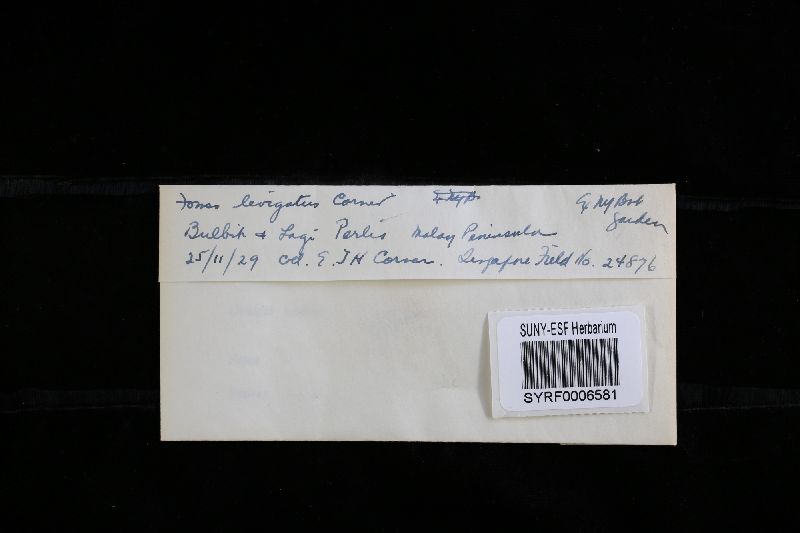 Fomes levigatus Corner Ex Ny Bot
Garden
Bulbit + Lagi Perlis Malay Peninsula
25/11/29 Col. E. J H Corner. Singapore Field No. 24876
SUNY-ESF Herbarium
SYRF0006581